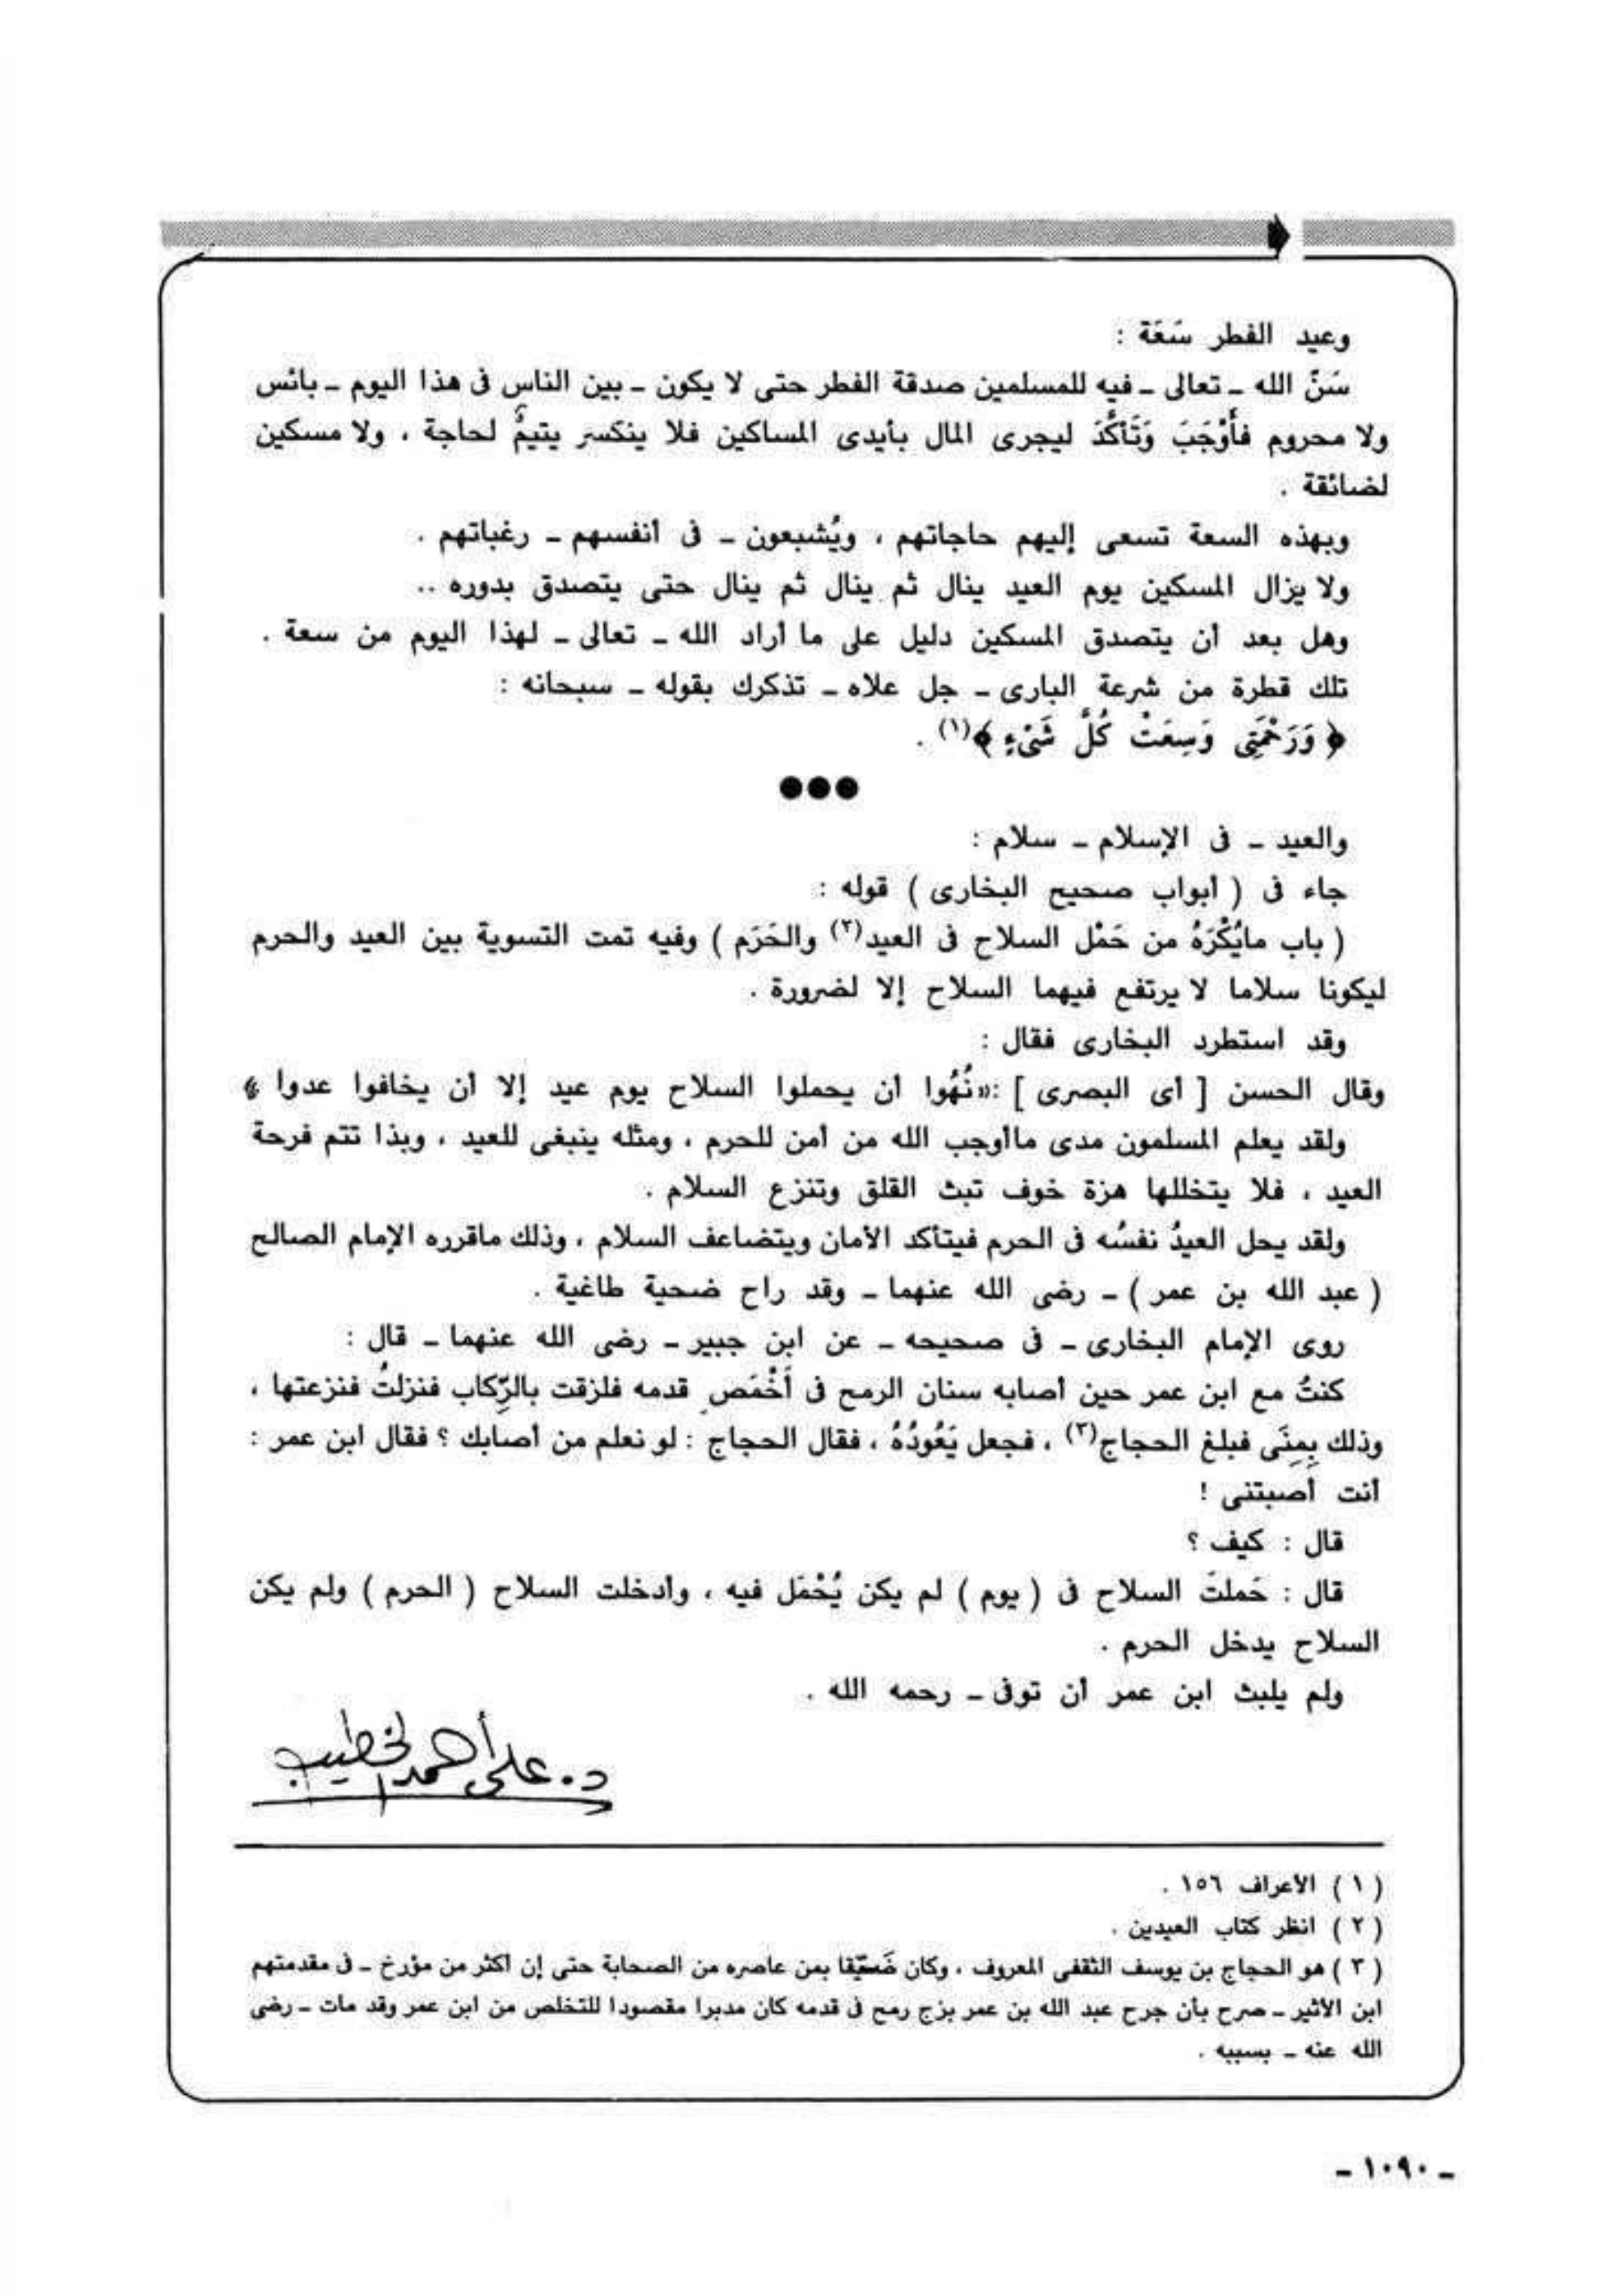 وعيد الفطر سَعَة :
سَنَّ الله ـ تعالى ـ فيه للمسلمين صدقة الفطر حتى لا يكون ـ بين الناس فى هذا اليوم ـ بائس
ولا محروم فأَوْجَبَ وَتَأَكَّدَ ليجرى المال بأيدى المساكين فلا ينكسر يتيمٌ لحاجة ، ولا مسكين
لضائقة .
وبهذه السعة تسعى إليهم حاجاتهم ، ويُشبعون ـ فى أنفسهم ـ رغباتهم .
ولا يزال المسكين يوم العيد ينال ثم ينال ثم ينال حتى يتصدق بدوره ..
وهل بعد أن يتصدق المسكين دليل على ما أراد الله ـ تعالى ـ لهذا اليوم من سعة .
تلك قطرة من شرعة البارى ـ جل علاه ـ تذكرك بقوله ـ سبحانه :
﴿ وَرَحْمَتِى وَسِعَتْ كُلَّ شَىْءٍ ﴾(١) .
●●●
والعيد ـ فى الإسلام ـ سلام :
جاء فى ( أبواب صحيح البخارى ) قوله :
( باب مايُكْرَهُ من حَمْل السلاح فى العيد(٢) والحَرَم ) وفيه تمت التسوية بين العيد والحرم
ليكونا سلاما لا يرتفع فيهما السلاح إلا لضرورة .
وقد استطرد البخارى فقال :
وقال الحسن [ أى البصرى ] :«نُهُوا أن يحملوا السلاح يوم عيد إلا أن يخافوا عدوا ﴾
ولقد يعلم المسلمون مدى ماأوجب الله من أمن للحرم ، ومثله ينبغى للعيد ، وبذا تتم فرحة
العيد ، فلا يتخللها هزة خوف تبث القلق وتنزع السلام .
ولقد يحل العيدُ نفسُه فى الحرم فيتأكد الأمان ويتضاعف السلام ، وذلك ماقرره الإمام الصالح
( عبد الله بن عمر ) ـ رضى الله عنهما ـ وقد راح ضحية طاغية .
روى الإمام البخارى ـ فى صحيحه ـ عن ابن جبير ـ رضى الله عنهما ـ قال :
كنتُ مع ابن عمر حين أصابه سنان الرمح فى أَخْمَصِ قدمه فلزقت بالرِّكاب فنزلتُ فنزعتها ،
وذلك بِمِنًى فبلغ الحجاج(٣) ، فجعل يَعُودُهُ ، فقال الحجاج : لو نعلم من أصابك ؟ فقال ابن عمر :
أنت أصبتنى !
قال : كيف ؟
قال : حَملتَ السلاح فى ( يوم ) لم يكن يُحْمَل فيه ، وأدخلت السلاح ( الحرم ) ولم يكن
السلاح يدخل الحرم .
ولم يلبث ابن عمر أن توفى ـ رحمه الله .
د. على أحمد الخطيب
( ١ ) الأعراف ١٥٦ .
( ٢ ) انظر كتاب العيدين .
( ٣ ) هو الحجاج بن يوسف الثقفى المعروف ، وكان ضَيِّقا بمن عاصره من الصحابة حتى إن أكثر من مؤرخ ـ فى مقدمتهم
ابن الأثير ـ صرح بأن جرح عبد الله بن عمر بزج رمح فى قدمه كان مدبرا مقصودا للتخلص من ابن عمر وقد مات ـ رضى
الله عنه ـ بسببه .
ـ ١٠٩٠ ـ